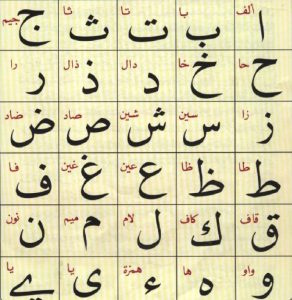 ألف ا با ب تا ت ثا ث جيم ج
حا ح خا خ دال د ذال ذ را ر
زا ز سين س شين ش صاد ص ضاد ض
طا ط ظا ظ عين ع غين غ فا ف
قاف ق كاف ك لام ل ميم م نون ن
واو و ها ه همزة ء يا ى يا ے